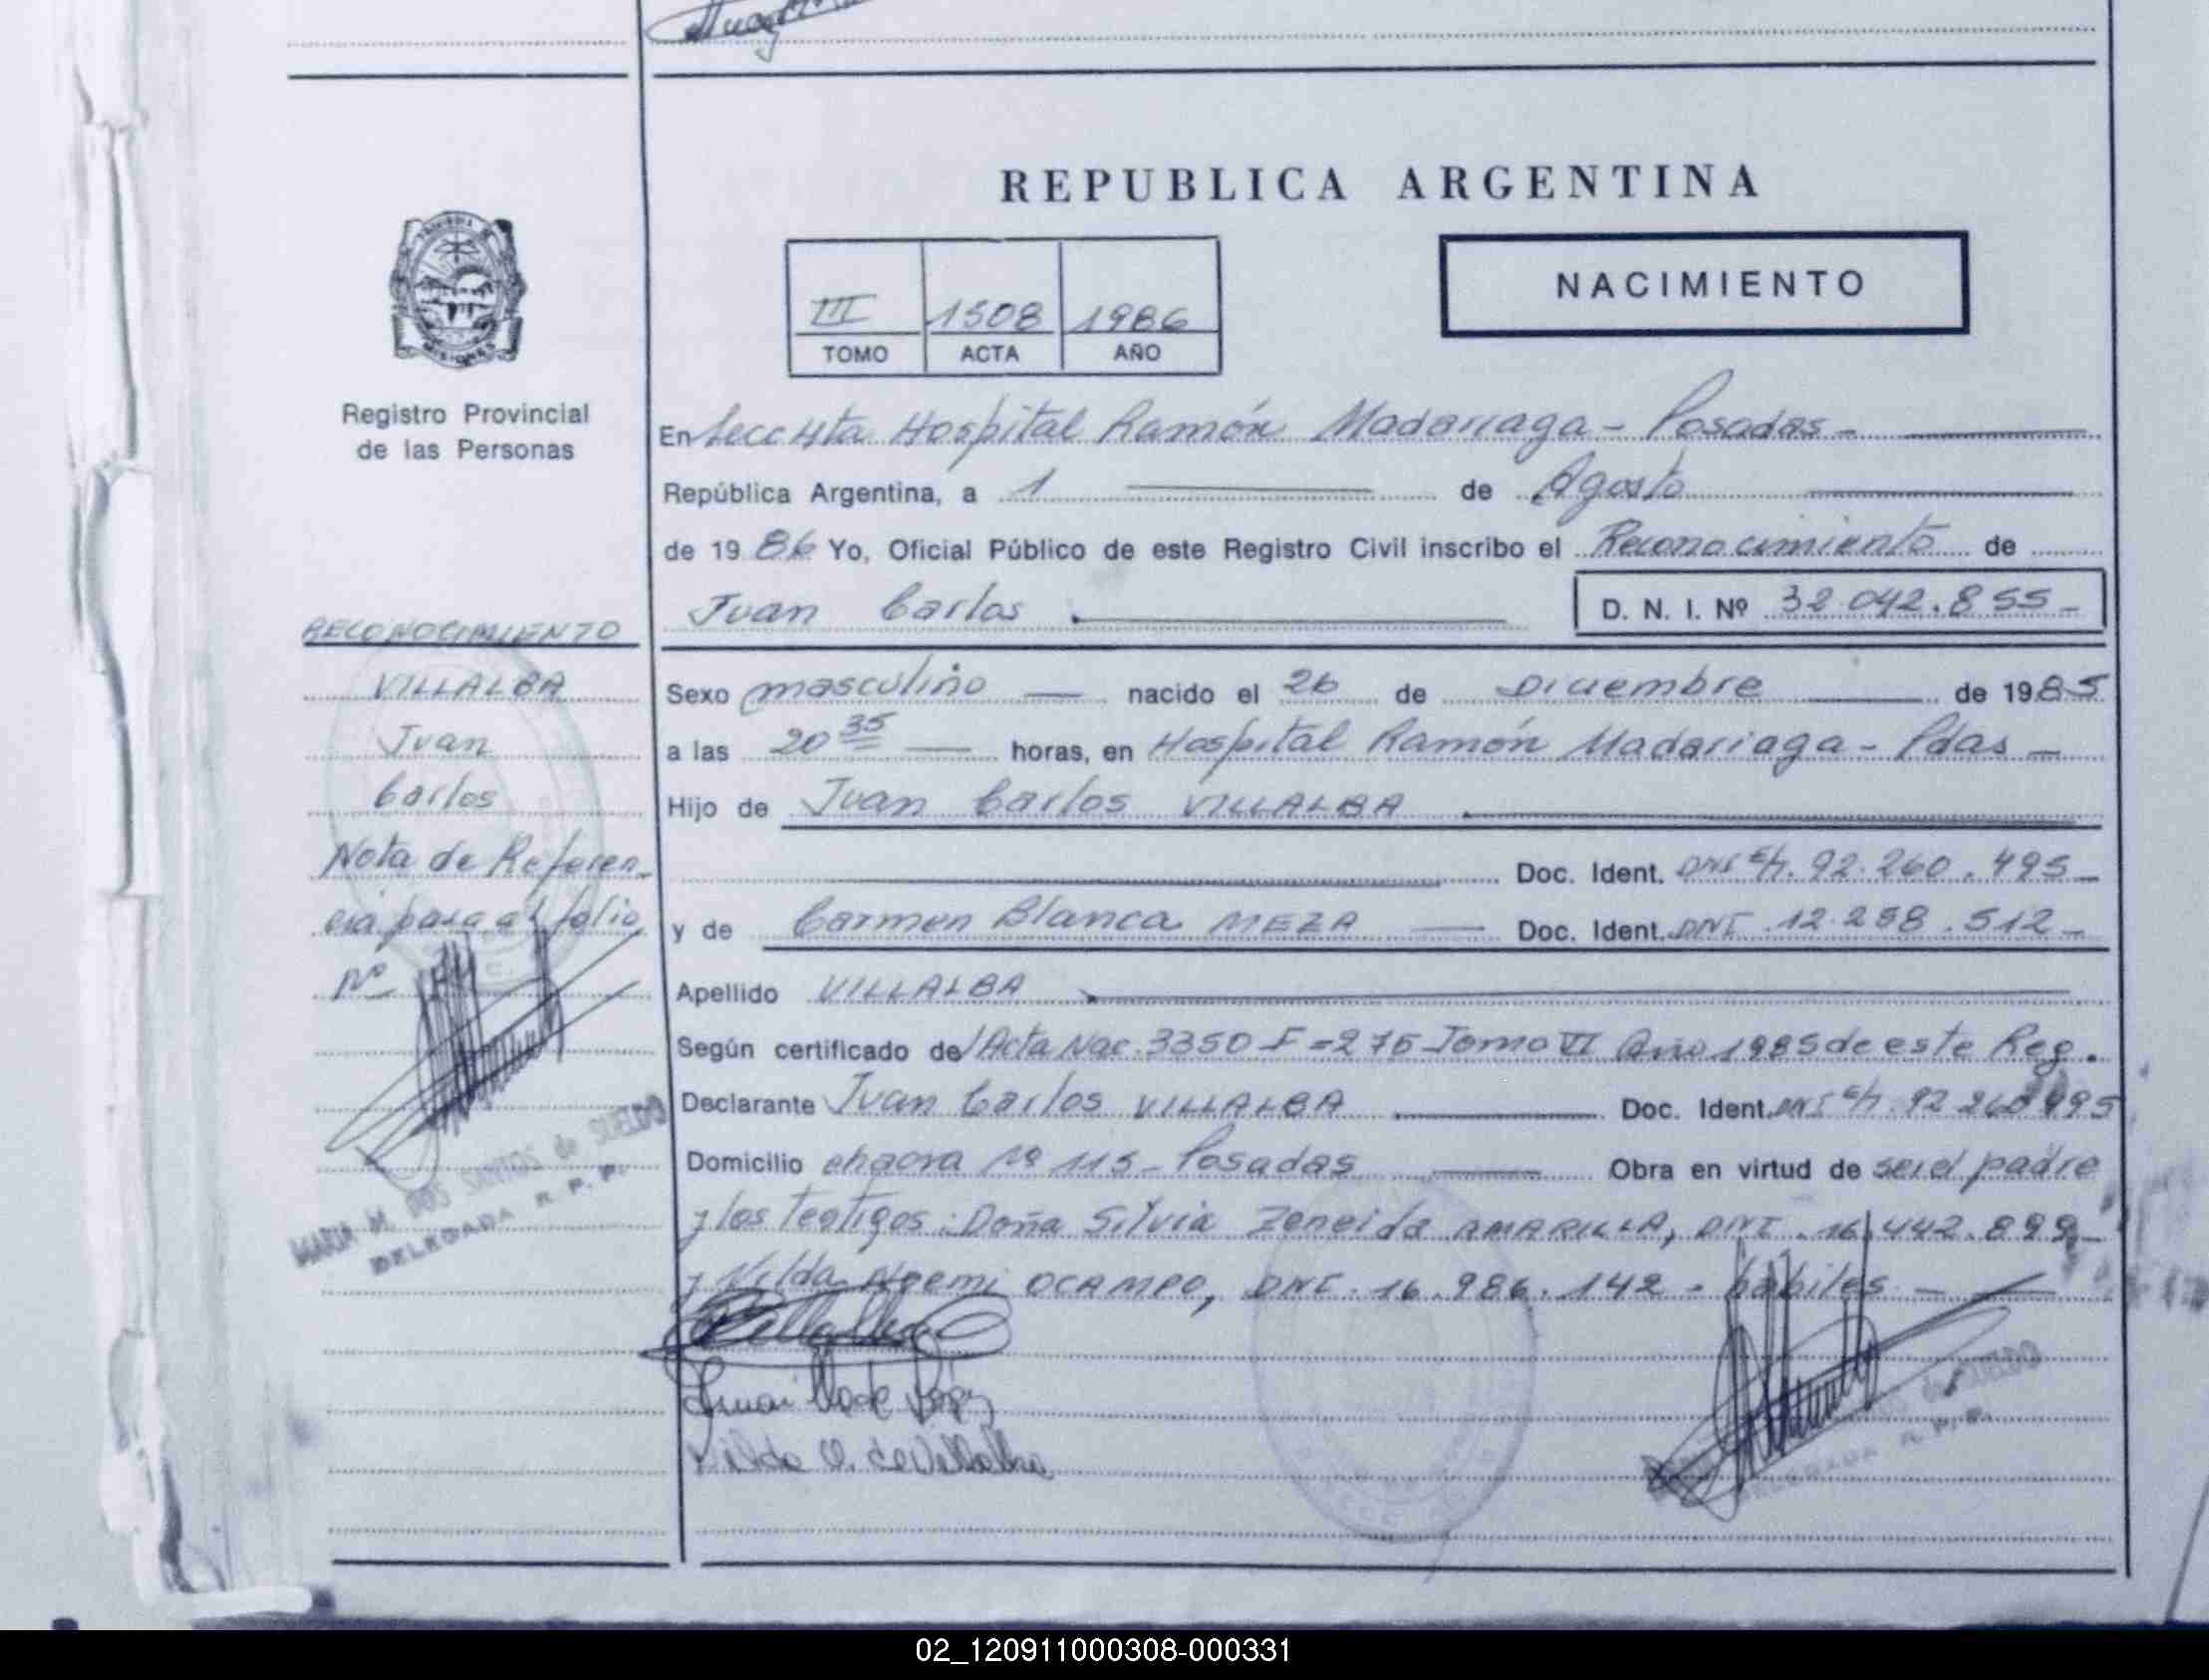 REPUBLICA ARGENTINA
NACIMIENTO
III 1508 1986
TOMO ACTA AÑO
Registro Provincial
de las Personas
En Secc 4ta Hospital Ramón Madariaga - Posadas -
República Argentina, a 1 de Agosto
de 19 86 Yo, Oficial Público de este Registro Civil inscribo el Reconocimiento de
Juan Carlos D. N. I. Nº 32.042.855-
RECONOCIMIENTO
VILLALBA
Juan
Carlos
Nota de Referen-
cia pasa al folio
Nº
MARIA M. DOS SANTOS de SUELDO
DELEGADA R. P. P.
Sexo masculino nacido el 26 de Diciembre de 1985
a las 20 35 horas, en Hospital Ramón Madariaga - Pdas -
Hijo de Juan Carlos VILLALBA
Doc. Ident. DNI E/T. 92.260.495-
y de Carmen Blanca MEZA Doc. Ident. DNI 12.258.512-
Apellido VILLALBA
Según certificado de/ Acta Nac. 3350 F=276 Tomo VI Año 1985 de este Reg.
Declarante Juan Carlos VILLALBA Doc. Ident. DNI E/T. 92.260.495
Domicilio chacra Nº 115 - Posadas Obra en virtud de ser el padre
y los testigos: Doña Silvia Zeneida AMARILLA, DNI. 16.442.899-
y Nilda Noemi OCAMPO, DNI. 16.986.142 - hábiles -
Villalba
Nilda O. de Villalba
DELEGADA R. P. P.
02_120911000308-000331